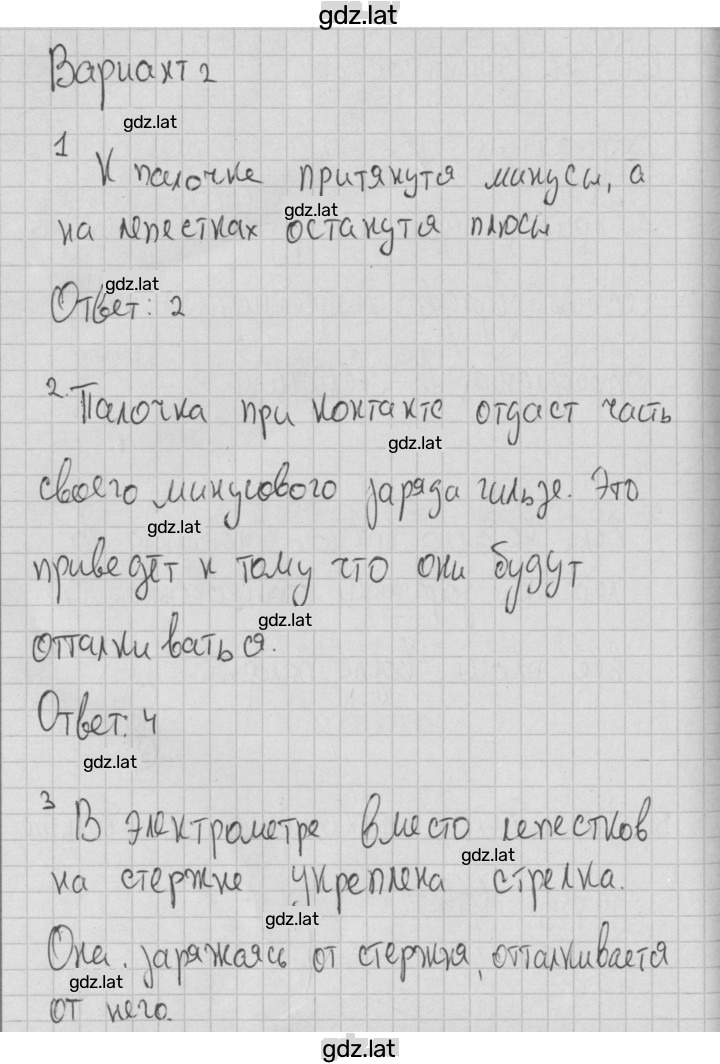 gdz.lat
Вариант 2
gdz.lat
1
К палочке притянутся минусы, а
gdz.lat
на лепестках останутся плюсы
gdz.lat
Ответ: 2
2. Палочка при контакте отдаст часть
gdz.lat
своего минусового заряда гильзе. Это
gdz.lat
приведёт к тому что они будут
gdz.lat
отталкиваться.
Ответ: 4
gdz.lat
3 В электрометре вместо лепестков
gdz.lat
на стержне укреплена стрелка.
gdz.lat
Она, заряжаясь от стержня, отталкивается
gdz.lat
от него.
gdz.lat